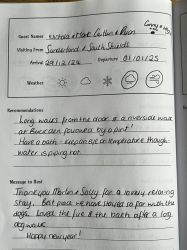 Guest Names & Mark Caitlin & Ryan
Visiting From Sunderland & South Shields
Arrived 29/12/24 Departure 01/01/25
Weather
Recommendations
Long walks from the door or a riverside walk
at followed by a pint!
Have a bath - keep an eye on temperature though-
water is piping hot
Message to Host
Thank you Martin & Sally for a lovely relaxing
stay. Best place we have stayed so far with the
dogs. Loved the fire & the bath after a long
dog walk
Happy new year!